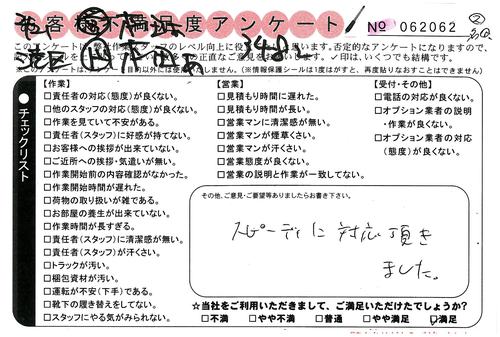 お客様不満足度アンケート
№ 062062
②
このアンケートは、弊社作業スタッフのレベル向上に役
思います。否定的なアンケートになりますので、
正直なご意見をお願いします。✓印は、いくつでも結構です。
目的以外には使用いたしません。(※情報保護シールは1度はがすと、再度貼りなおすことはできません
チェックリスト
【作業】
□責任者の対応(態度)が良くない。
□他のスタッフの対応(態度)が良くない。
□作業を見ていて不安がある。
□責任者(スタッフ)に好感が持てない。
□お客様への挨拶が出来ていない。
□ご近所への挨拶・気遣いが無い。
□作業開始前の内容確認がなかった。
□作業開始時間が遅れた。
□荷物の取り扱いが雑である。
□お部屋の養生が出来ていない。
□作業時間が長すぎる。
□責任者(スタッフ)に清潔感が無い。
□責任者(スタッフ)が汗くさい。
□トラックが汚い。
□梱包資材が汚い。
□運転が不安(下手)である。
□靴下の履き替えをしてない。
□スタッフにやる気がみられない。
【営業】
□見積もり時間に遅れた。
□見積もり時間が長い。
□営業マンに清潔感が無い。
□営業マンが煙草くさい。
□営業マンが汗くさい。
□営業態度が良くない。
□営業の説明と作業が一致してない。
【受付・その他】
□電話の対応が良くない。
□オプション業者の説明
・作業が良くない。
□オプション業者の対応
(態度)が良くない。
その他、ご意見・ご要望等ありましたらお書き下さい。
スピーディに対応頂き
ました。
☆当社をご利用いただきまして、ご満足いただけたでしょうか?
□不満 □やや不満 □普通 □やや満足 ☑満足